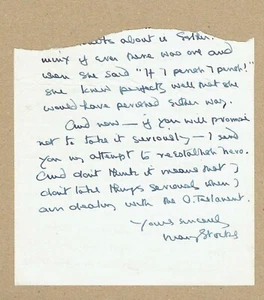 about a Sister.
minx if ever there was one and
when she said "If I perish I perish!"
she knew perfectly well that she
would have perished either way.
And now — if you will promise
not to take it seriously — I send
you my attempt to reestablish hero.
And dont think it means that I
dont take things seriously when I
am dealing with the O. Testament.
Yours sincerely
Mary Stocks